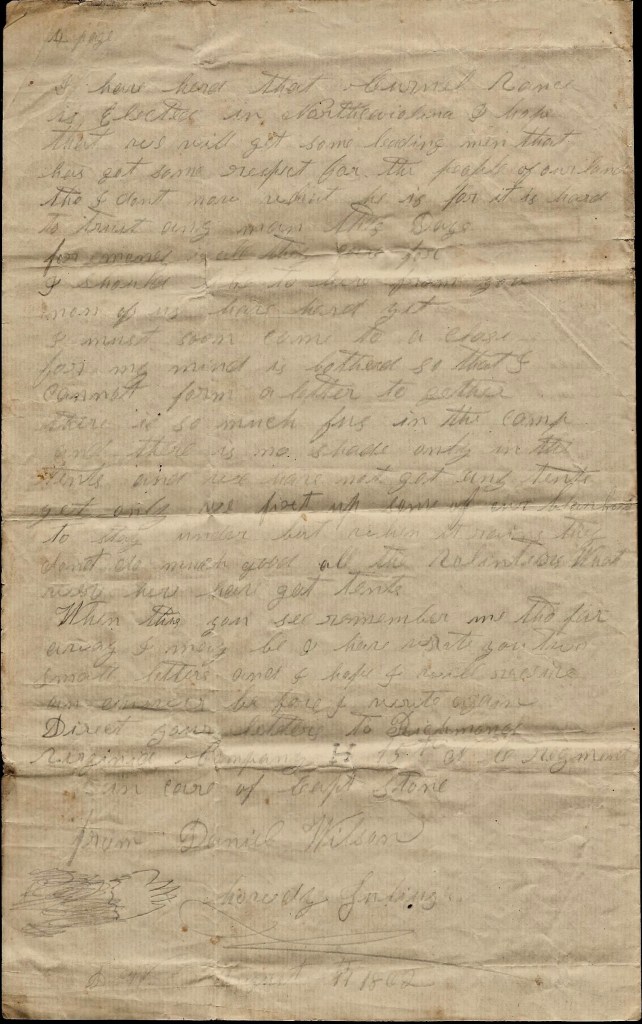 4 page
I have herd that Curnel Vance
is Elected in Northcarolina I hope
that wee will get some leading men that
has got some respect for the people of our land
tho I dont now wheir he is for it is hard
to trust any man this Days
for all they care for
I should like to here from you
non of us have herd yet
I must soon come to a close
for my mind is botherd so that I
Cannot form a letter to gether
there is so much fus in the camp
and there is no shade only in the
tents and wee have not got any tents
yet only wee put up some of our blankets
to stay under but when it rains they
dont do much good all the Valenters What
was here have got tents
When this you see remember me tho far
away I may be I have wrote you two
small letters and I hope I will receive
an answer be fore I write again
Direct your letters to Richmond
Virginia Company H 18 regment
in care of Capt Stone
from Daniel Wilson
howdy
1862